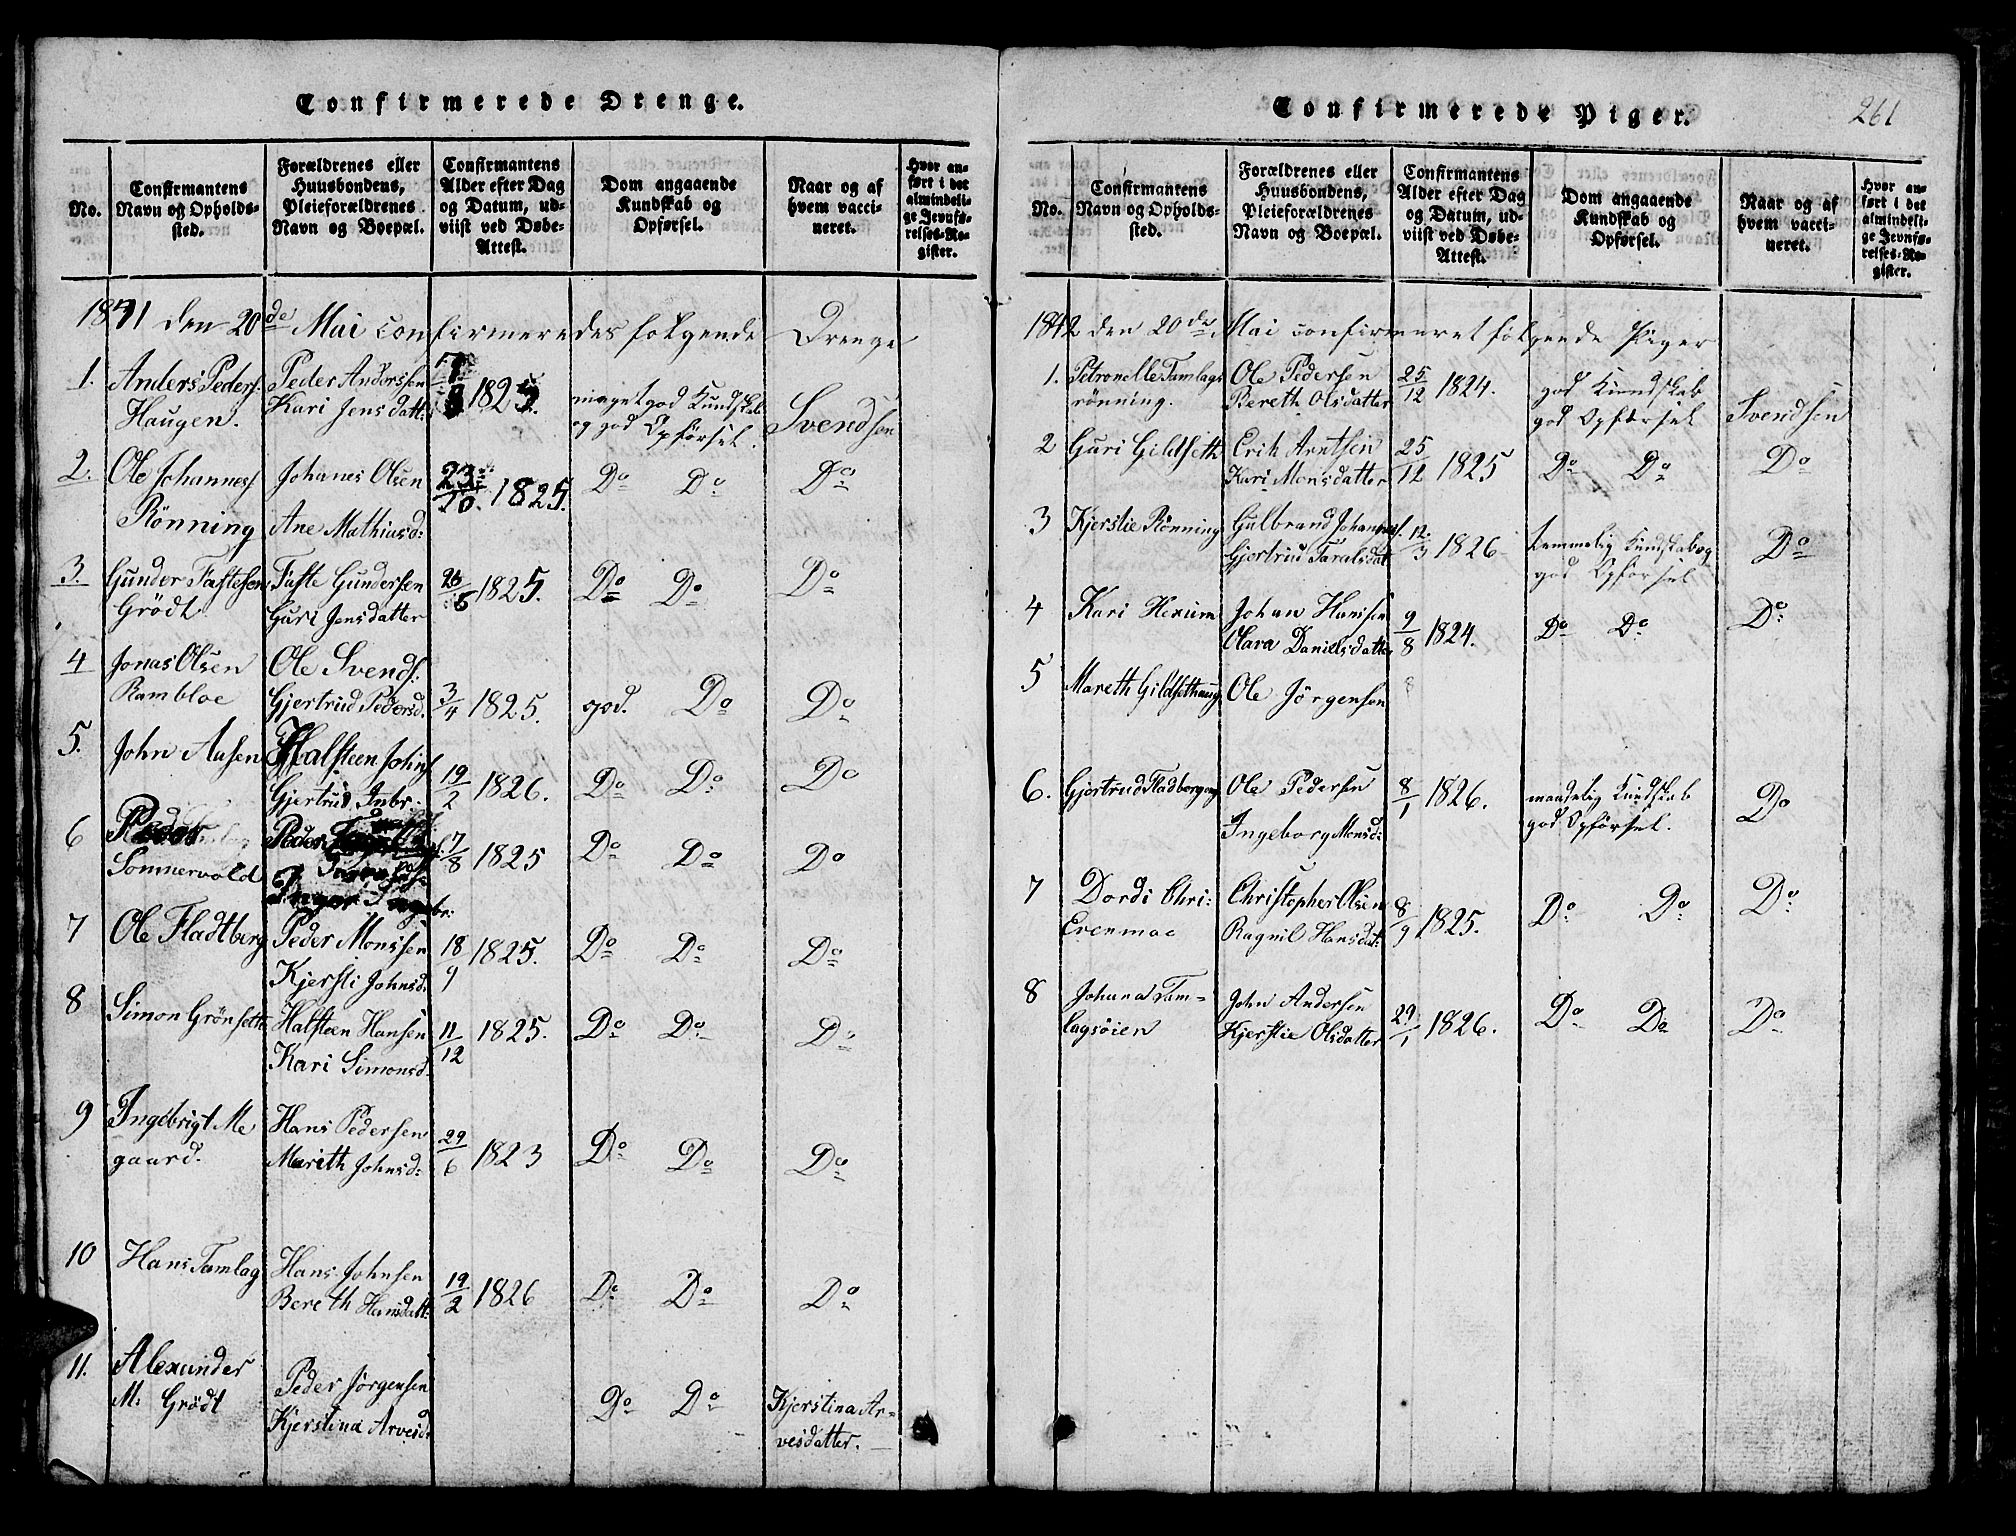 Confirmerede Drenge.
No.
Confirmantens
Navn og Opholds-
sted.
Forældrenes eller
Huusbondens,
Pleieforældrenes
Navn og Boepæl.
Confirmantens
Alder efter Dag
og Datum, ud-
viist ved Døbe-
Attest.
Dom angaaende
Kundskab og
Opførsel.
Naar og af
hvem vacci-
neret.
Hvor an-
ført i det
almindeli-
ge Jevnfø-
relses-Re-
gister.
1841 den 20de Mai confirmeredes følgende Drenge
1. Anders Peders. Peder Anderssen 7/8 1825. meget god Kundskab Svendsen
Haugen. Kari Jensdatt: og god Opførsel.
2. Ole Johannes. Johanes Olsen 23/10. 1825. Do Do Do
Rönning Ane Mathiasd:
3. Gunder Tastesen Taste Gundersen 26/5 1825. Do Do Do
Grödt. Guri Jensdatter
4 Jonas Olsen Ole Svends.
Rambloe Gjertrud Pedersd. 3/4 1825. god. Do Do
5. John Aasen Halsteen Johns. 19/2 1826. Do Do Do
Gjertrud Inbr:
6 Peder Peder 7/8 1825 Do Do Do
Sommervold Inger Ingebr:
7 Ole Fladtberg Peder Monssen 18/9 1825. Do Do Do
Kjersti Johnsd:
8 Simon Grönseth Halsteen Hansen 11/12 1825. Do Do Do
Kari Simonsd.
9 Ingebrigt Me Hans Pedersen 29/6 1823 Do Do Do
gaard. Marith Johnsd:
10 Hans Tamlag Hans Johnsen 19/2 1826 Do Do Do
Bereth Hansdatt:
11. Alexander Peder Jörgensen Do Do Kjerstina Ar-
M: Grödt Kjerstina Arvesd: vesdatter.
Confirmerede Piger.
261
No.
Confirmantens
Navn og Opholds-
sted.
Forældrenes eller
Huusbondens,
Pleieforældrenes
Navn og Boepæl.
Confirmantens
Alder efter Dag
og Datum, ud-
viist ved Døbe-
Attest.
Dom angaaende
Kundskab og
Opførsel.
Naar og af
hvem vacci-
neret.
Hvor an-
ført i det
almindeli-
ge Jevnfø-
relses-Re-
gister.
1842 den 20de Mai confirmeret følgende Piger
1. Petronelle Tamlags Ole Pedersen 25/12 1824. god Kundskab Svendsen
rönning. Bereth Olsdatter god Opførsel
2 Guri Gildseth Erik Arntsen 25/12 1825 Do Do Do
Kari Monsdatter
3 Kjerstie Rönning Gulbrand Johannes. 12/3 1826 temmelig Kundskab og Do
Gjertrud Taralsdat god Opførsel
4 Kari Hexum Johan Hanssen 9/8 1824. Do Do Do
Olava Danielsdatter
5 Mareth Gildsethaug Ole Jörgensen
6. Gjertrud Fladbergeng Ole Pedersen 8/1 1826. maadelig Kundskab Do
Ingeborg Monsd: god Opførsel.
7 Dordi Chri: Christopher Olsen 8/9 1825. Do Do Do
Evenmoe Ragnil Hansdat:
8 Johana Tam- John Andersen 29/1 1826. Do Do Do
lagsöien Kjerstie Olsdatter